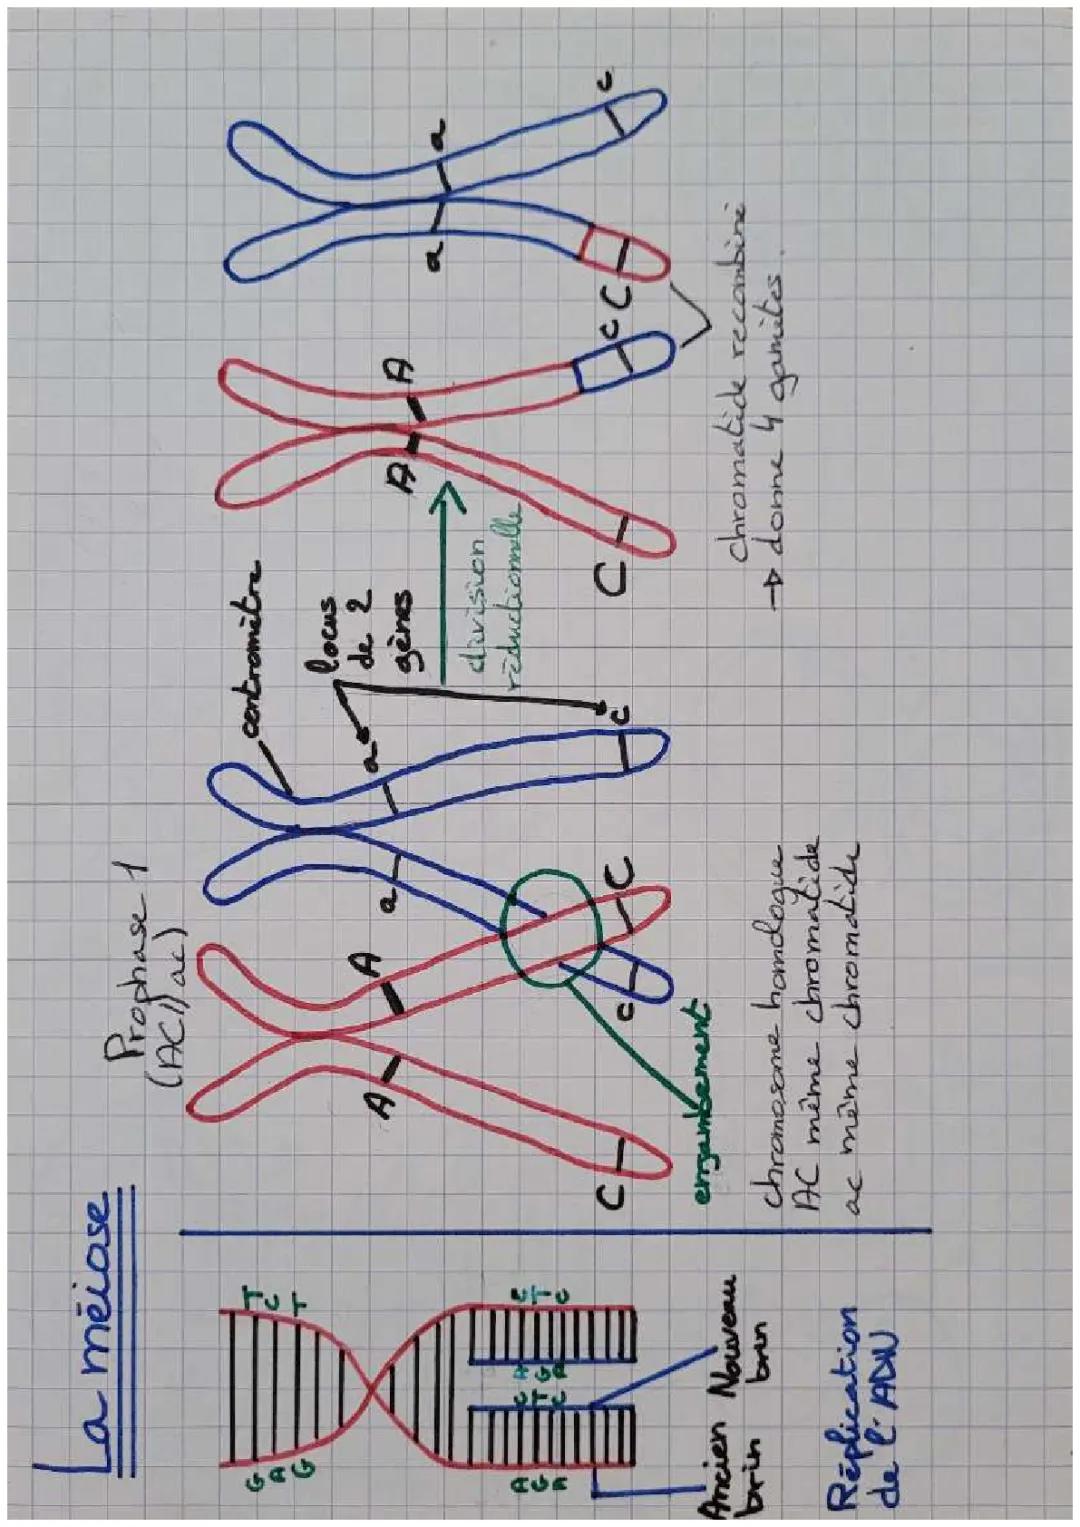 La méiose
G
A
G
T
C
T
A
G
A
C
T
C
A
G
A
C
T
C
Ancien
brin
Nouveau
brin
Réplication
de l'ADN
Prophase 1
(AC//ac)
A
A
a
a
C
c
C
c
centromètre
locus
de 2
gènes
enjambement
chromosome homologue
AC même chromatide
ac même chromatide
division
réductionnelle
A
A
a
a
C
c
C
c
chromatide recombiné
→ donne 4 gamètes.